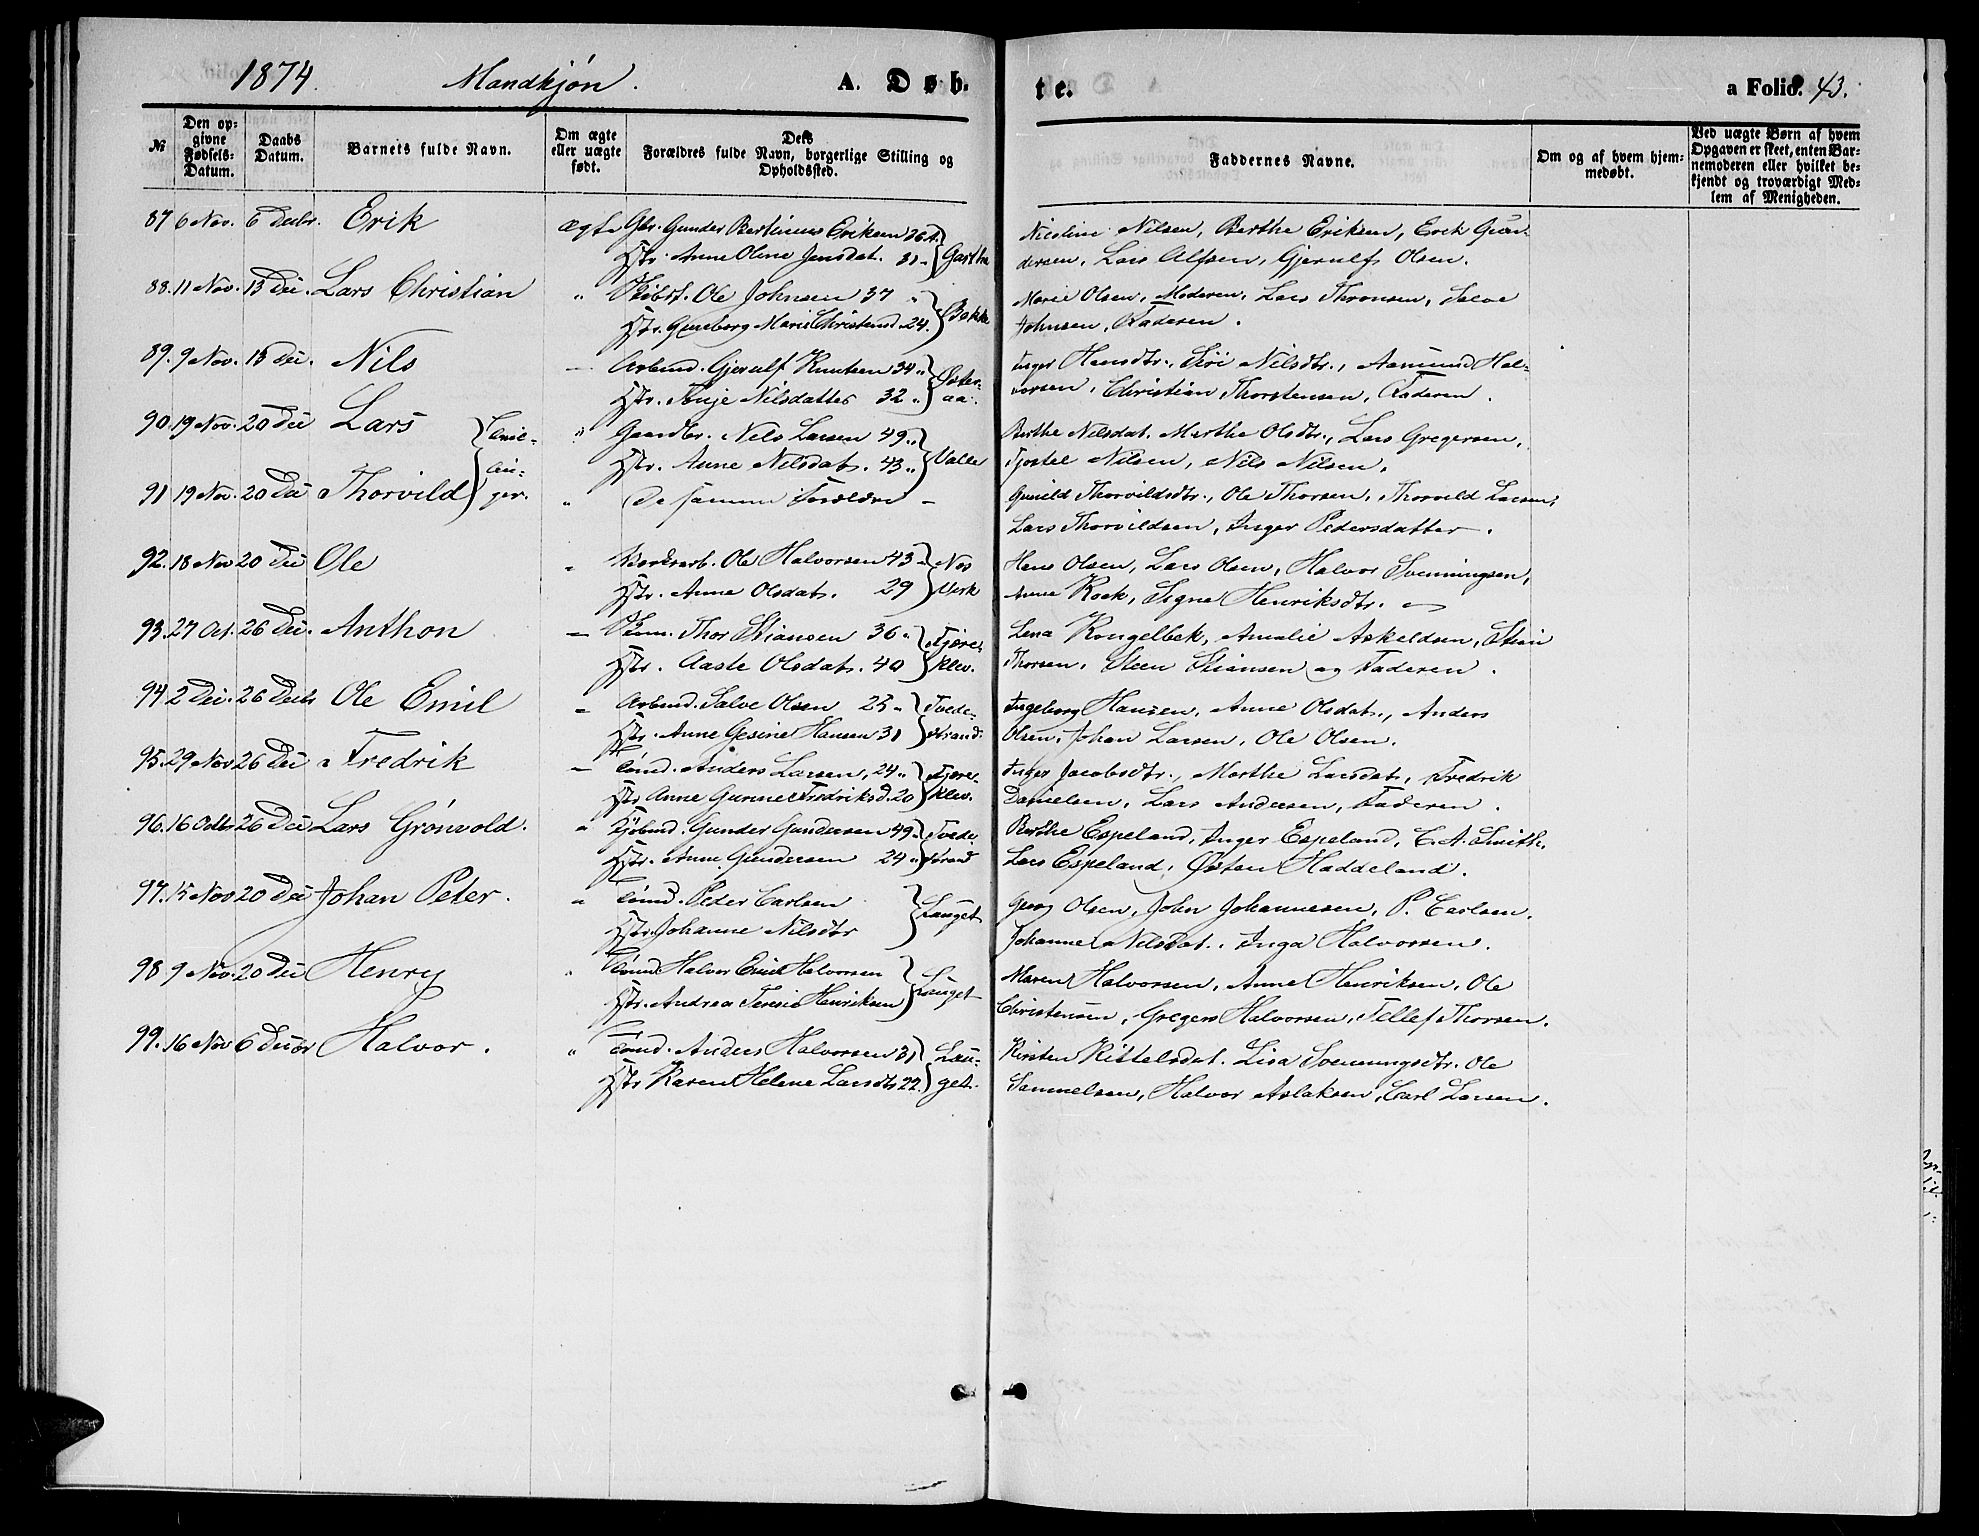 1874. Mandkjøn. A. Døb-
te. a Folio. 43.
№ Den opgivne Fødsels-Datum. Daabs Datum. Barnets fulde Navn. Om ægte eller uægte født. Dets Forældres fulde Navn, borgerlige Stilling og Opholdssted.
Faddernes Navne. Om og af hvem hjemmedøbt. Ved uægte Børn af hvem Opgaven er skeet, enten Barnemoderen eller hvilket bekjendt og troværdigt Medlem af Menigheden.
87 6 Nov. 6 Decbr. Erik ægte Gbr. Gunder Bertinius Eriksen 36 A.
Hstr. Anne Oline Jensdat. 31 „ Gartha
Nicoline Nilsen, Berthe Eriksen, Erik Gun-
dersen, Lars Alfsen, Gjerulf Olsen.
88. 11 Nov. 13 Dec. Lars Christian „ Ole Johnsen 37 „
Hstr. Gunborg Marie Christensd. 24. Bakke
Marie Olsen, Moderen, Lars Thronsen, Salve
Johnsen, Faderen.
89. 9 Nov. 13 Dec. Nils — Arbmd. Gjerulf Knutsen 34 „
Hstr. Anje Nilsdatter 32 „ Øster-
aa.
Inger Hansdtr., Siri Nilsdtr., Aamund Hal-
vorsen, Christian Thorstensen, Faderen.
90. 19 Nov. 20 Dec Lars „ Gaardbr. Nils Larsen 49 „
Hstr. Anne Nilsdat. 43 „ Valle
Berthe Nilsdat. Marthe Olsdtr., Lars Gregersen,
Tjostel Nilsen, Nils Nilsen.
91 19 Nov. 20 Dec Thorvild Tvil-
lin-
ger. „ de samme Forældre —
Gunild Thorvildsdtr., Ole Thorsen, Thorvild Larsen,
Lars Thorvildsen, Inger Pedersdatter.
92. 18 Nov 20 Dec Ole „ Værksarb. Ole Halvorsen 43 „
Hstr. Anne Olsdat. 29 Nes
Verk
Hans Olsen, Lars Olsen, Halvor Svenningsen,
Anne Roek, Signe Henriksdtr.
93. 27 Oct. 26 Dec. Anthon — Thor Stiansen 36 „
Hstr. Aaste Olsdat. 40 Fjære-
klev.
Lena Kongelbek, Amalie Askeldsen, Stian
Thorsen, Steen Stiansen og Faderen.
94 2 Dec. 26 Decbr Ole Emil — Arbmd. Salve Olsen 25 „
Hstr. Anne Gesine Hansen 31 Tvede-
strand.
Ingeborg Hansen, Anne Olsdat., Anders
Olsen, Johan Larsen, Ole Olsen.
95. 29 Nov 26 Dec Fredrik — Tømd. Anders Larsen, 24 „
Hstr Anne Gurine Fredriksd. 20 Fjære-
klev.
Inger Jacobsdtr., Marthe Larsdat, Fredrik
Danielsen, Lars Andersen, Faderen.
96. 16 Octbr 26 Dec Lars Grønvold. „ Gunder Gundersen 49 „
Hstr. Anne Gundersen 24 „ Tvede-
strand
Berthe Espeland, Inger Espeland, C. A. Smith.
Lars Espeland, Østen Haddeland.
97. 15 Nov 20 Dec Johan Peter. „ Tømd. Peder Carlsen
Hstr. Johanne Nilsdtr Lauget
Georg Olsen, John Johannesen, P. Carlsen.
Johanne Nilsdat. Inga Halvorsen.
98. 9 Nov. 20 Dec Henry „ Tømd. Halvor Emil Halvorsen
Hstr. Andrea Teresie Henriksen Lauget
Maren Halvorsen, Anne Henriksen, Ole
Christensen, Gregers Halvorsen, Tellef Thorsen.
99. 16 Nov 6 Decbr Halvor. „ Tømd. Anders Halvorsen 31
Hstr Karen Helene Larsdtr 22. Lau-
get.
Kirsten Kittelsdat. Lisa Svenningsdtr. Ole
Samuelsen, Halvor Aslaksen, Carl Larsen.